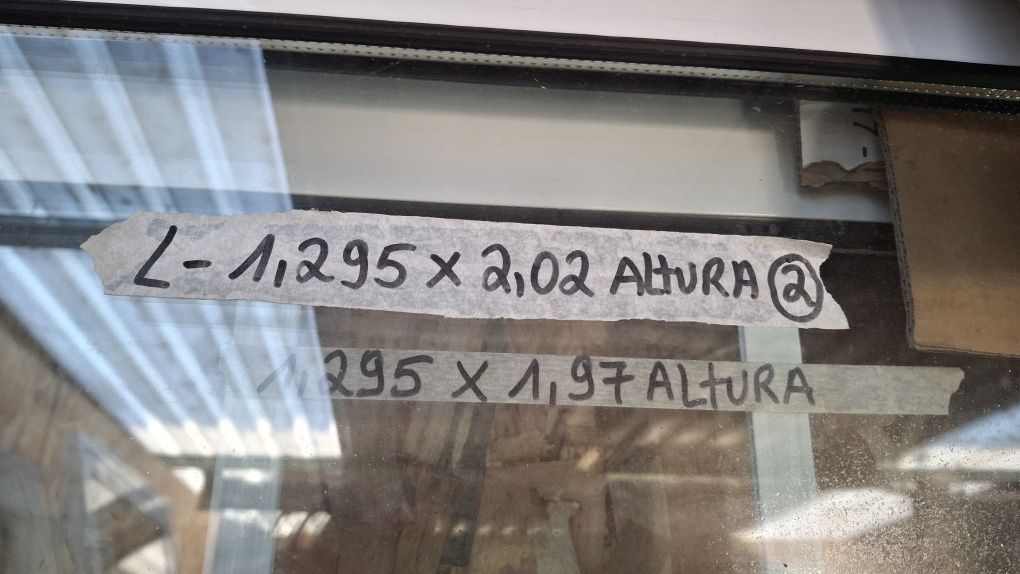 L - 1,295 x 2,02 ALtURA ②
1,295 X 1,97 ALtURA